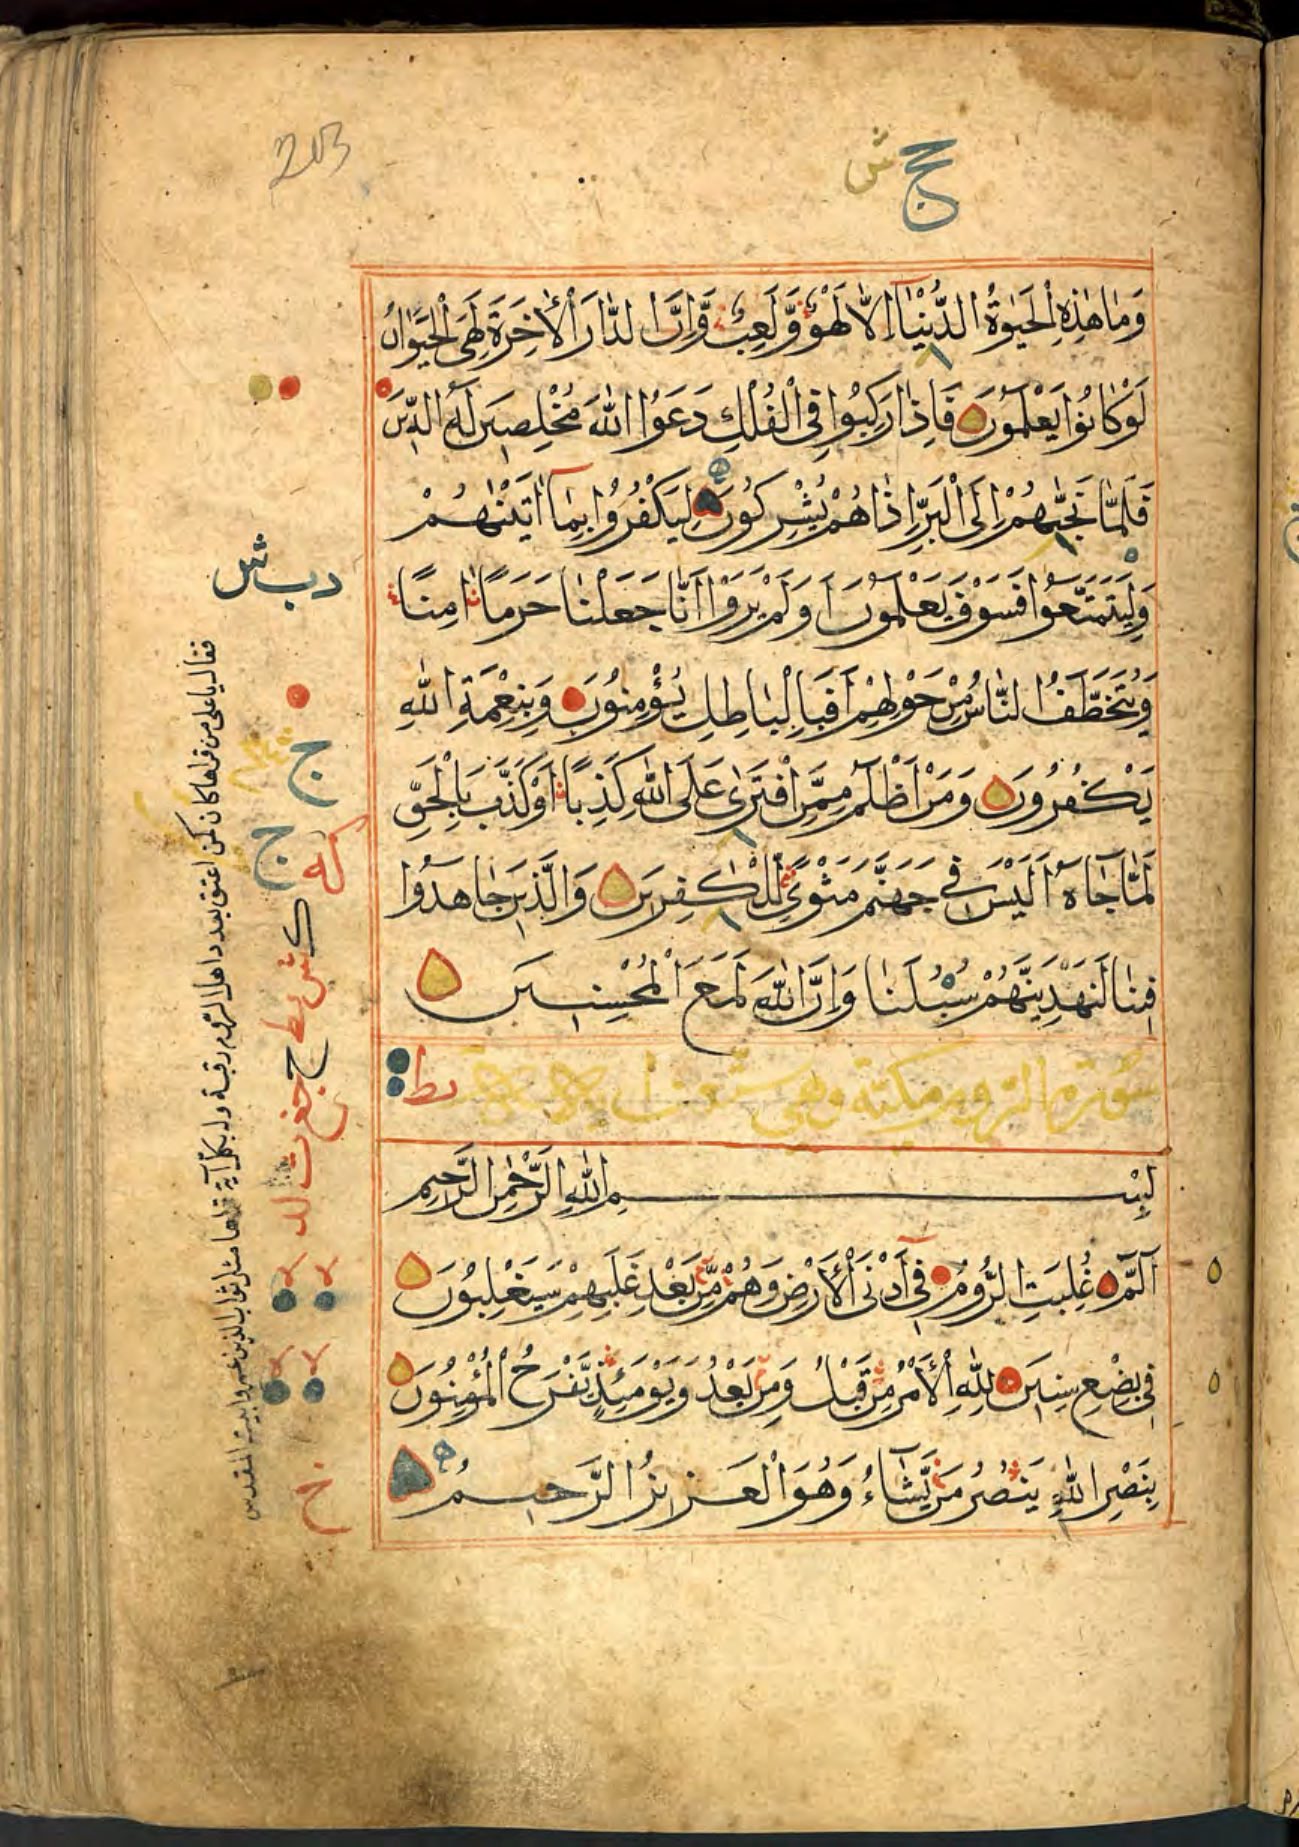 203
حج ش
وَمَا هٰذِهِ الْحَيٰوةُ الدُّنْيَآ اِلَّا لَهْوٌ وَّلَعِبٌ وَّاِنَّ الدَّارَ الْاٰخِرَةَ لَهِيَ الْحَيَوَانُ
لَوْ كَانُوْا يَعْلَمُوْنَ فَاِذَا رَكِبُوْا فِي الْفُلْكِ دَعَوُا اللّٰهَ مُخْلِصِيْنَ لَهُ الدِّيْنَ
فَلَمَّا نَجّٰىهُمْ اِلَى الْبَرِّ اِذَا هُمْ يُشْرِكُوْنَ لِيَكْفُرُوْا بِمَآ اٰتَيْنٰهُمْ
وَلِيَتَمَتَّعُوْا فَسَوْفَ يَعْلَمُوْنَ اَوَلَمْ يَرَوْا اَنَّا جَعَلْنَا حَرَمًا اٰمِنًا
وَّيُتَخَطَّفُ النَّاسُ مِنْ حَوْلِهِمْ اَفَبِالْبَاطِلِ يُؤْمِنُوْنَ وَبِنِعْمَةِ اللّٰهِ
يَكْفُرُوْنَ وَمَنْ اَظْلَمُ مِمَّنِ افْتَرٰى عَلَى اللّٰهِ كَذِبًا اَوْ كَذَّبَ بِالْحَقِّ
لَمَّا جَآءَهٗ اَلَيْسَ فِيْ جَهَنَّمَ مَثْوًى لِّلْكٰفِرِيْنَ وَالَّذِيْنَ جَاهَدُوْا
فِيْنَا لَنَهْدِيَنَّهُمْ سُبُلَنَا وَاِنَّ اللّٰهَ لَمَعَ الْمُحْسِنِيْنَ
سورة الروم مكية وهي ستون
بِسْمِ اللّٰهِ الرَّحْمٰنِ الرَّحِيْمِ
الٓمّٓ غُلِبَتِ الرُّوْمُ فِيْٓ اَدْنَى الْاَرْضِ وَهُمْ مِّنْ بَعْدِ غَلَبِهِمْ سَيَغْلِبُوْنَ
فِيْ بِضْعِ سِنِيْنَ لِلّٰهِ الْاَمْرُ مِنْ قَبْلُ وَمِنْ بَعْدُ وَيَوْمَئِذٍ يَّفْرَحُ الْمُؤْمِنُوْنَ
بِنَصْرِ اللّٰهِ يَنْصُرُ مَنْ يَّشَآءُ وَهُوَ الْعَزِيْزُ الرَّحِيْمُ
فقال يا علي من قراها كان كمن اعتق بعدد اهل الروم رقبة وله بكل اية قراها مثل ثواب الذين عمروا بيت المقدس